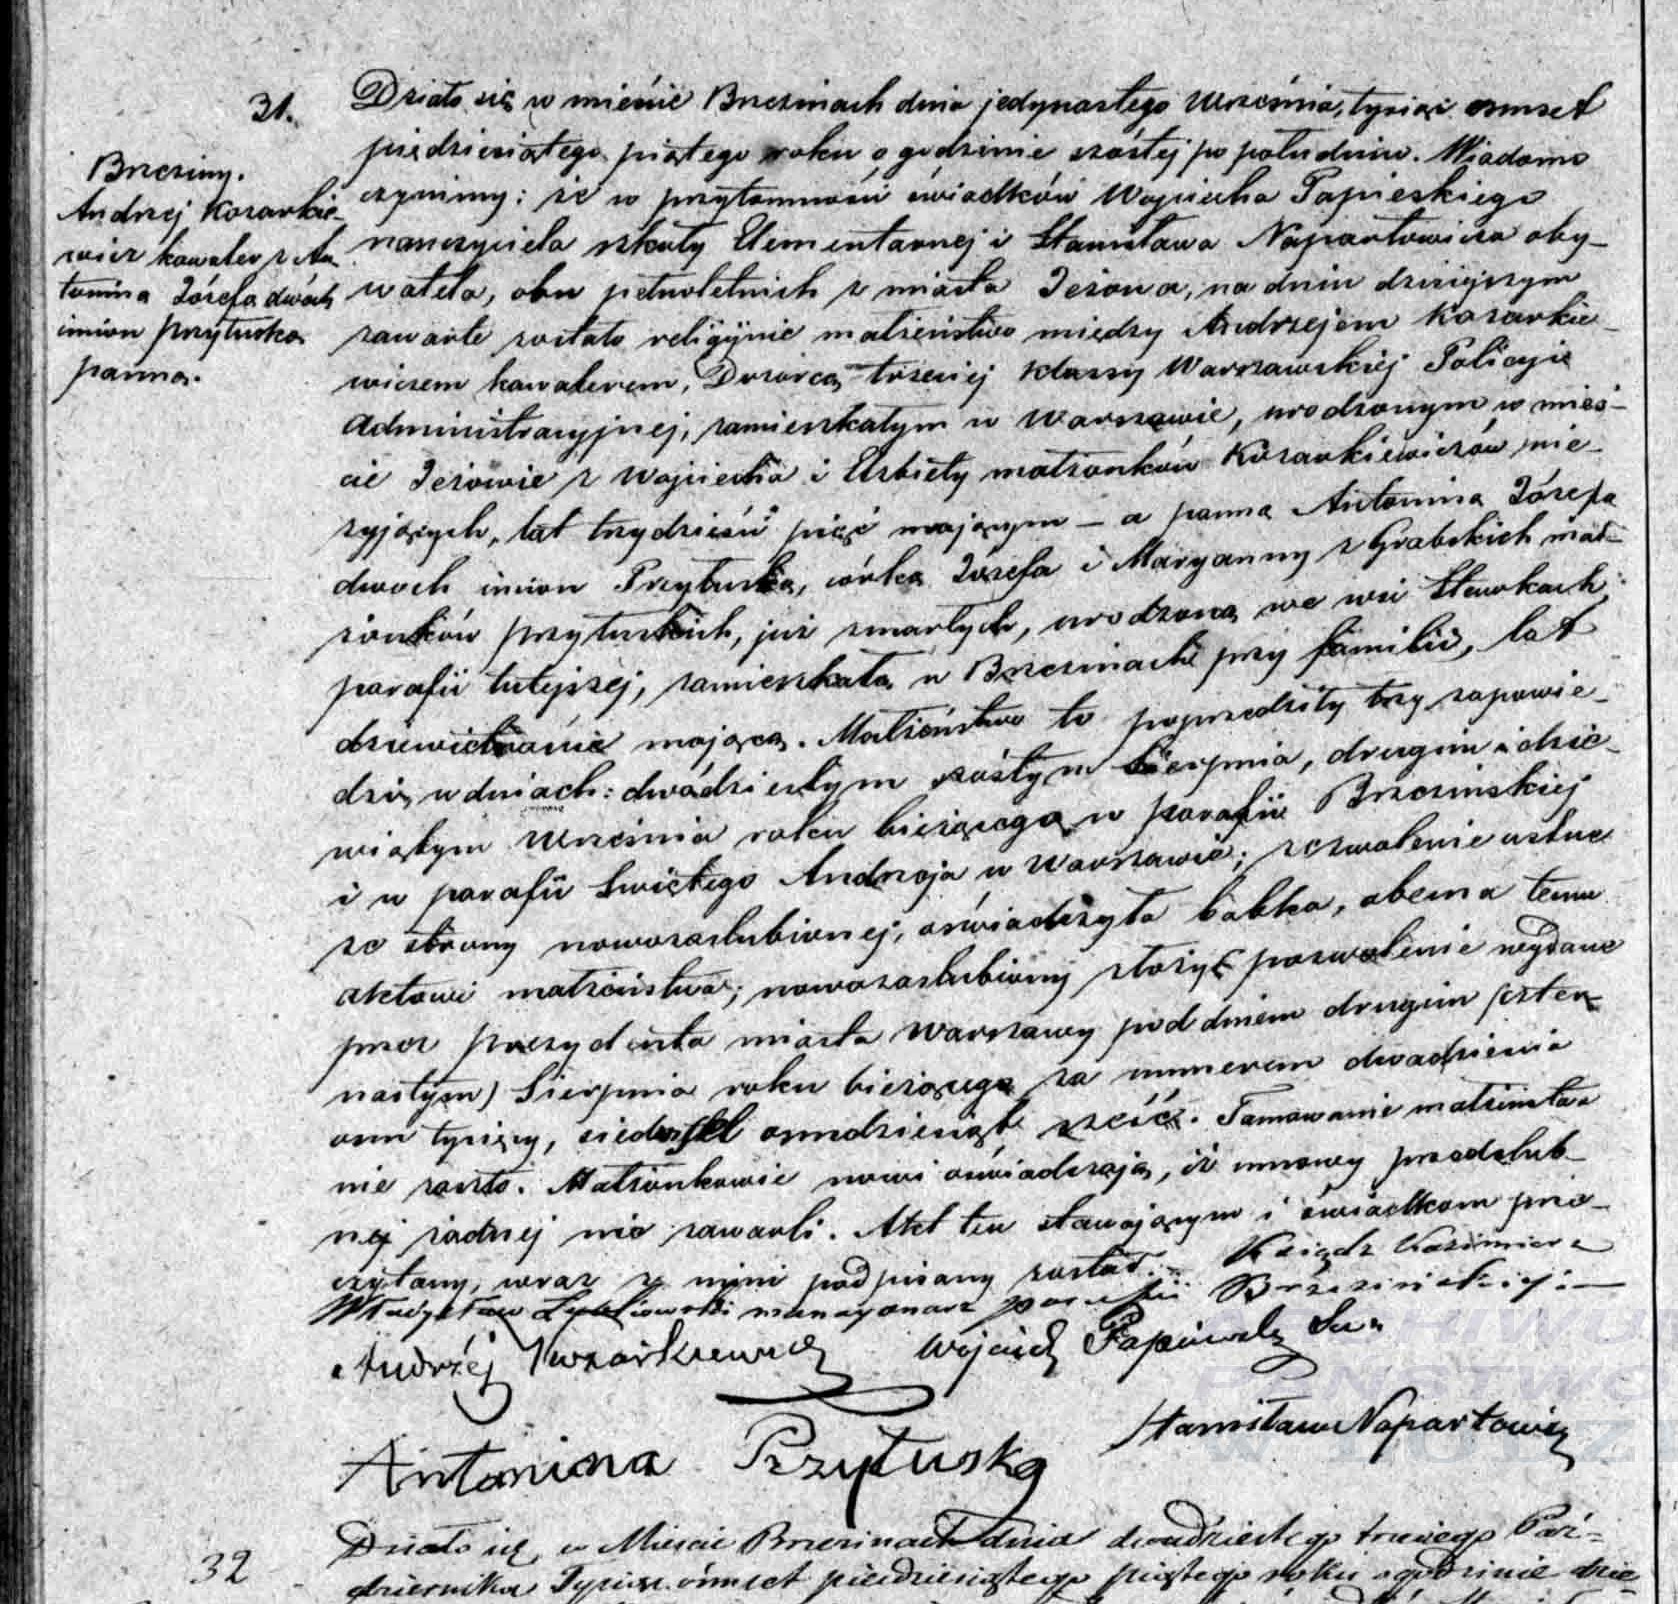 31.
Brzeziny.
Andrzej Kozarkie-
wicz kawaler z An
tonina Józefa dwóch
imion Przytuska
panna.
Działo się w mieście Brzezinach dnia jedynastego Września, tysiąc osmset
pięćdziesiątego piątego roku o godzinie szóstej po południu. Wiadomo
czynimy: że w przytomności świadków Wojciecha Papieskiego
nauczyciela szkoły Elementarnej i Stanisława Napartowicza oby-
watela, obu pełnoletnich z miasta Jeżowa, na dniu dzisiejszym
zawarte zostało religijnie małżeństwo między Andrzejem Kozarkie-
wiczem kawalerem, Dozorcą trzeciej klassy Warszawskiej Policyie
Administracyjnej, zamieszkałym w Warszawie, urodzonym w mieś-
cie Jeżowie z Wojciecha i Elżbiety małżonków Kozarkiewiczów nie-
żyjących, lat trzydzieści pięć mającym – a panną Antoniną Józefą
dwoch imion Przytuską, córką Józefa i Maryanny z Grabskich mał-
żonków Przytuskich, już zmarłych, urodzoną we wsi Sławkach,
parafii tutejszej, zamieszkałą w Brzezinach przy familii, lat
dziewiętnaście mającą. Małżeństwo to poprzedziły trzy zapowie-
dzi w dniach: dwódziestym szóstym Sierpnia, drugim i dzie-
wiątym Września roku bieżącego w parafii Brzezinskiej
i w parafii Swiętego Andrzeja w Warszawie; zezwolenie ustne
ze strony nowozaslubionej, oświadczyła babka, obecna temu
aktowi małżeństwa; nowozaslubiony złożył pozwolenie wydane
przez Prezydenta miasta Warszawy pod dniem drugim (czter-
nastym) Sierpnia roku bieżącego za numerem dwadzieścia
osm tysięcy, siedmset osmdziesiąt sześć. Tamowanie małżeństwa
nie zaszło. Małżonkowie nowi oświadczają, iż umowy przedslub-
nej żadnej nie zawarli. Akt ten stawającym i świadkom prze-
czytany, wraz z nimi podpisany został. – Ksiądz Kazimierz
Władysław mansyonarz parafii Brzezińskiej. –
Andrzéj Kozarkiewicz Wojciech Papieski
Stanisław Napartowicz
Antonina Przytuska
32
Działo się w Mieście Brzezinach dnia dwudziestego trzeciego Paź-
dziernika Tysiąc ośmset pięćdziesiątego piątego roku o godzinie dzie-